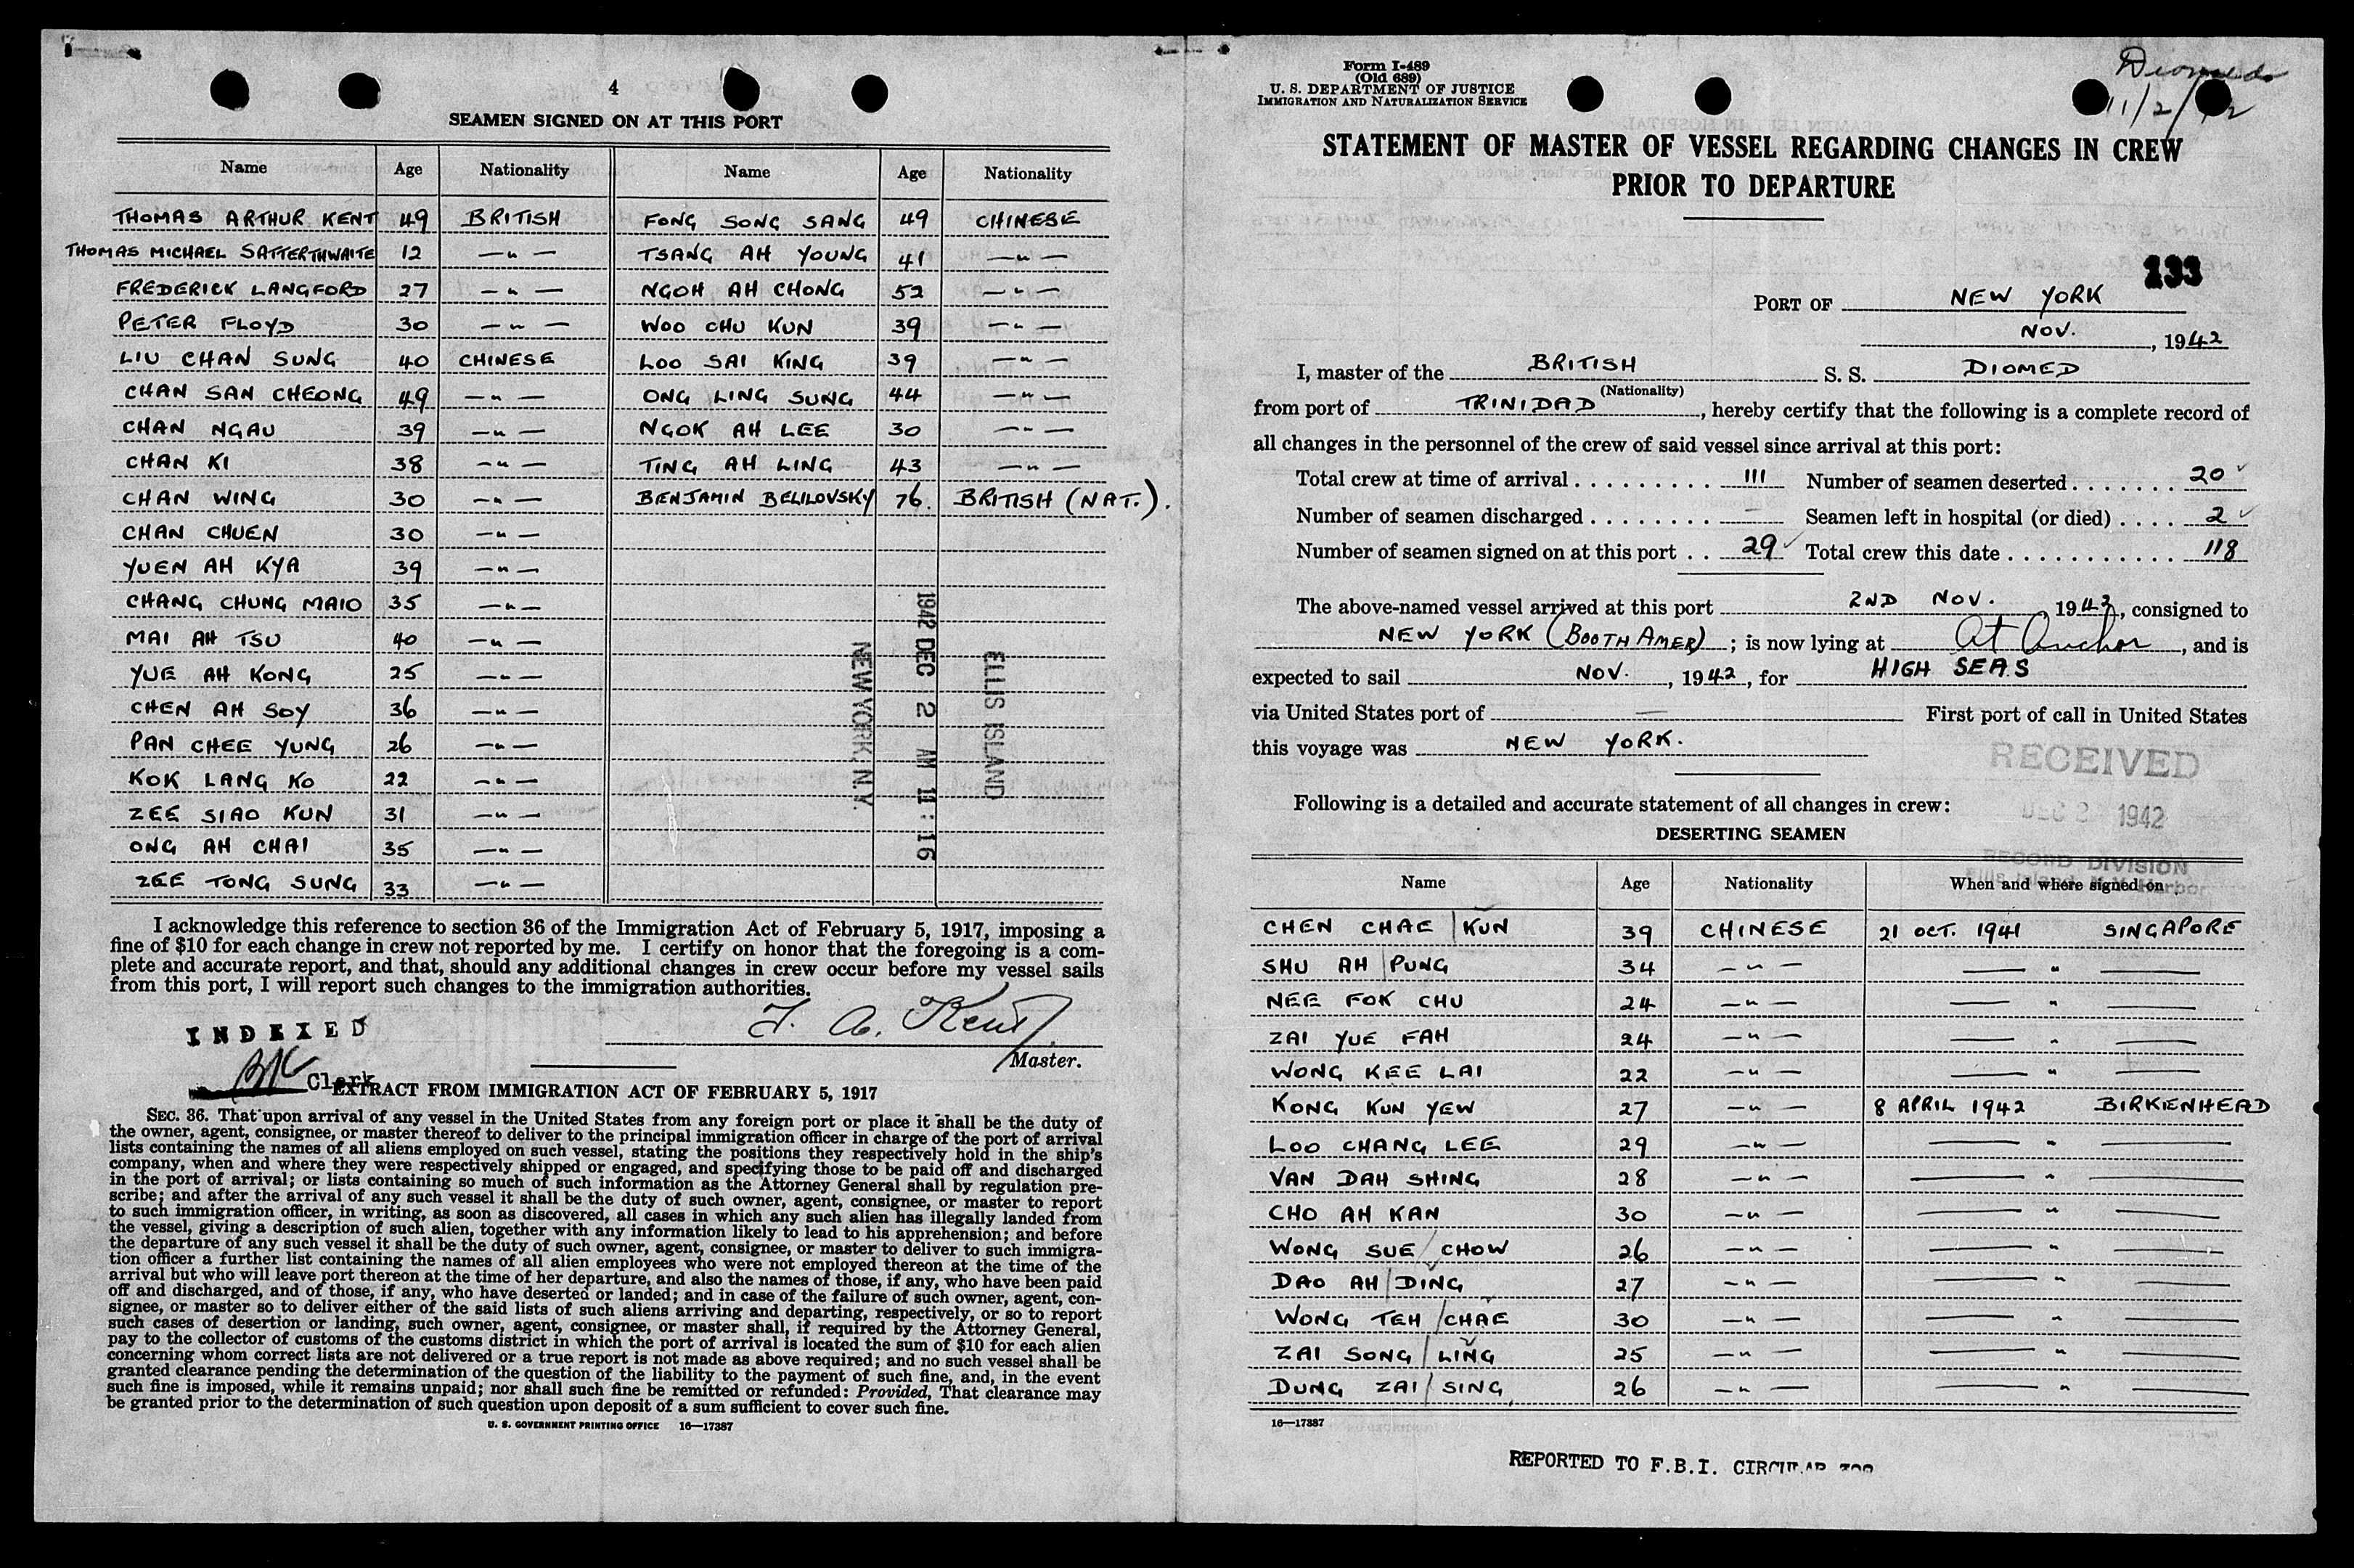 4
SEAMEN SIGNED ON AT THIS PORT
Name Age Nationality Name Age Nationality
THOMAS ARTHUR KENT 49 BRITISH FONG SONG SANG 49 CHINESE
THOMAS MICHAEL SATTERTHWAITE 12 — " — TSANG AH YOUNG 41 — " —
FREDERICK LANGFORD 27 — " — NGOH AH CHONG 52 — " —
PETER FLOYD 30 — " — WOO CHU KUN 39 — " —
LIU CHAN SUNG 40 CHINESE LOO SAI KING 39 — " —
CHAN SAN CHEONG 49 — " — ONG LING SUNG 44 — " —
CHAN NGAU 39 — " — NGOK AH LEE 30 — " —
CHAN KI 38 — " — TING AH LING 43 — " —
CHAN WING 30 — " — BENJAMIN BELILOVSKY 76. BRITISH (NAT.).
CHAN CHUEN 30 — " —
YUEN AH KYA 39 — " —
CHANG CHUNG MAIO 35 — " —
MAI AH TSU 40 — " —
YUE AH KONG 25 — " —
CHEN AH SOY 36 — " —
PAN CHEE YUNG 26 — " —
KOK LANG KO 22 — " —
ZEE SIAO KUN 31 — " —
ONG AH CHAI 35 — " —
ZEE TONG SUNG 33 — " —
ELLIS ISLAND
1942 DEC 2 AM 11:16
NEW YORK, N.Y.
I acknowledge this reference to section 36 of the Immigration Act of February 5, 1917, imposing a
fine of $10 for each change in crew not reported by me. I certify on honor that the foregoing is a com-
plete and accurate report, and that, should any additional changes in crew occur before my vessel sails
from this port, I will report such changes to the immigration authorities.
INDEXED
T. A. Kent
Master.
Clerk
EXTRACT FROM IMMIGRATION ACT OF FEBRUARY 5, 1917
SEC. 36. That upon arrival of any vessel in the United States from any foreign port or place it shall be the duty of
the owner, agent, consignee, or master thereof to deliver to the principal immigration officer in charge of the port of arrival
lists containing the names of all aliens employed on such vessel, stating the positions they respectively hold in the ship's
company, when and where they were respectively shipped or engaged, and specifying those to be paid off and discharged
in the port of arrival; or lists containing so much of such information as the Attorney General shall by regulation pre-
scribe; and after the arrival of any such vessel it shall be the duty of such owner, agent, consignee, or master to report
to such immigration officer, in writing, as soon as discovered, all cases in which any such alien has illegally landed from
the vessel, giving a description of such alien, together with any information likely to lead to his apprehension; and before
the departure of any such vessel it shall be the duty of such owner, agent, consignee, or master to deliver to such immigra-
tion officer a further list containing the names of all alien employees who were not employed thereon at the time of the
arrival but who will leave port thereon at the time of her departure, and also the names of those, if any, who have been paid
off and discharged, and of those, if any, who have deserted or landed; and in case of the failure of such owner, agent, con-
signee, or master so to deliver either of the said lists of such aliens arriving and departing, respectively, or so to report
such cases of desertion or landing, such owner, agent, consignee, or master shall, if required by the Attorney General,
pay to the collector of customs of the customs district in which the port of arrival is located the sum of $10 for each alien
concerning whom correct lists are not delivered or a true report is not made as above required; and no such vessel shall be
granted clearance pending the determination of the question of the liability to the payment of such fine, and, in the event
such fine is imposed, while it remains unpaid; nor shall such fine be remitted or refunded: Provided, That clearance may
be granted prior to the determination of such question upon deposit of a sum sufficient to cover such fine.
U. S. GOVERNMENT PRINTING OFFICE 16—17387
Form I-489
(Old 689)
U. S. DEPARTMENT OF JUSTICE
IMMIGRATION AND NATURALIZATION SERVICE
Diomed
11/2/42
STATEMENT OF MASTER OF VESSEL REGARDING CHANGES IN CREW
PRIOR TO DEPARTURE
133
PORT OF NEW YORK
NOV. , 1942
I, master of the BRITISH S. S. DIOMED
(Nationality)
from port of TRINIDAD, hereby certify that the following is a complete record of
all changes in the personnel of the crew of said vessel since arrival at this port:
Total crew at time of arrival 111 Number of seamen deserted 20
Number of seamen discharged — Seamen left in hospital (or died) 2
Number of seamen signed on at this port 29 Total crew this date 118
The above-named vessel arrived at this port 2ND NOV. 1942, consigned to
NEW YORK (BOOTH AMER); is now lying at At Anchor, and is
expected to sail NOV. , 1942, for HIGH SEAS
via United States port of — First port of call in United States
this voyage was NEW YORK.
RECEIVED
DEC 2 1942
RECORD DIVISION
Ellis Island, N.Y. Harbor
Following is a detailed and accurate statement of all changes in crew:
DESERTING SEAMEN
Name Age Nationality When and where signed on
CHEN CHAE KUN 39 CHINESE 21 OCT. 1941 SINGAPORE
SHU AH PUNG 34 — " — — " —
NEE FOK CHU 24 — " — — " —
ZAI YUE FAH 24 — " — — " —
WONG KEE LAI 22 — " — — " —
KONG KUN YEW 27 — " — 8 APRIL 1942 BIRKENHEAD
LOO CHANG LEE 29 — " — — " —
VAN DAH SHING 28 — " — — " —
CHO AH KAN 30 — " — — " —
WONG SUE CHOW 26 — " — — " —
DAO AH DING 27 — " — — " —
WONG TEH CHAE 30 — " — — " —
ZAI SONG LING 25 — " — — " —
DUNG ZAI SING 26 — " — — " —
16—17387
REPORTED TO F.B.I. CIRCULAR